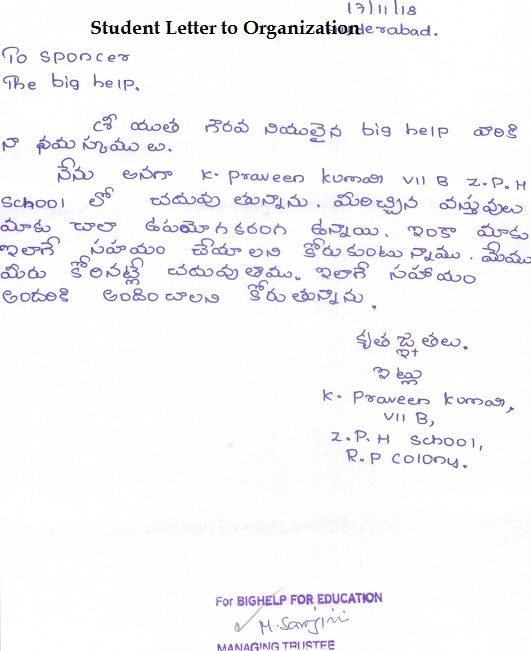 17/11/18
Student Letter to Organization
Hyderabad.
To sponcer
The big help.
శ్రీ యుత గౌరవ నియులైన big help వారికి
నా నమస్కాములు.
నేను అనగా K. Praveen Kumar VII B Z.P.H
School లో చదువు తున్నాను. మీరిచ్చిన వస్తువులు
మాకు చాలా ఉపయోగకరంగ ఉన్నాయి. ఇంకా మాకు
ఇలాగే సహయం చేయాలని కోరుకుంటున్నాము. మేము
మీరు కోరినట్లే చదువుతాము. ఇలాగే సహాయం
అందరికి అందించాలని కోరుతున్నాను.
కృతజ్ఞతలు.
ఇట్లు
K. Praveen Kumar,
VII B,
Z.P.H School,
R.P Colony.
For BIGHELP FOR EDUCATION
M. Sarojini
MANAGING TRUSTEE